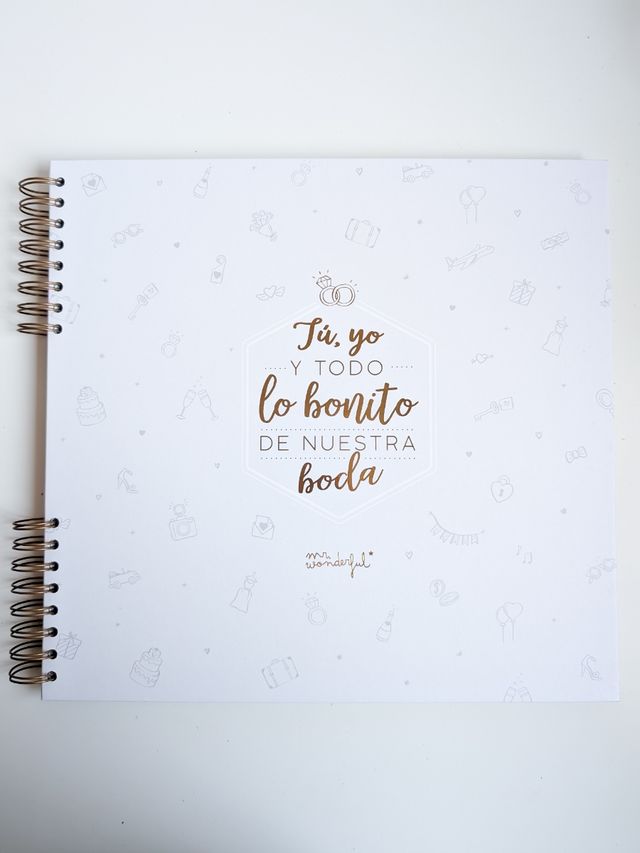 Tú, yo
Y TODO
lo bonito
DE NUESTRA
boda
mr.
wonderful*